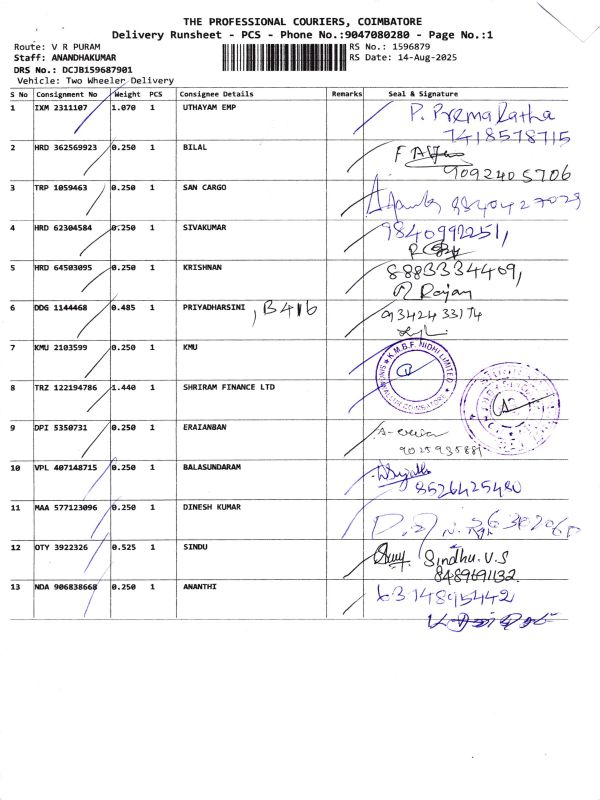 THE PROFESSIONAL COURIERS, COIMBATORE
Delivery Runsheet - PCS - Phone No.:9047080280 - Page No.:1
Route: V R PURAM RS No.: 1596879
Staff: ANANDHAKUMAR RS Date: 14-Aug-2025
DRS No.: DCJB159687901
Vehicle: Two Wheeler Delivery
S No Consignment No Weight PCS Consignee Details Remarks Seal & Signature
1 IXM 2311107 1.070 1 UTHAYAM EMP P. Prema Latha
7418578715
2 HRD 362569923 0.250 1 BILAL
9092405706
3 TRP 1059463 0.250 1 SAN CARGO
4 HRD 62304584 0.250 1 SIVAKUMAR 9840992251,
5 HRD 64503095 0.250 1 KRISHNAN 8883334409,
Rajan
6 DDG 1144468 0.485 1 PRIYADHARSINI , B416 9342433174
7 KMU 2103599 0.250 1 KMU K.M.B.F. NIDHI LIMITED
8 TRZ 122194786 1.440 1 SHRIRAM FINANCE LTD
9 DPI 5350731 0.250 1 ERAIANBAN
10 VPL 407148715 0.250 1 BALASUNDARAM
8526425480
11 MAA 577123096 0.250 1 DINESH KUMAR
12 OTY 3922326 0.525 1 SINDU Sindhu.V.S
8489691132
13 NDA 906838668 0.250 1 ANANTHI 6314895442